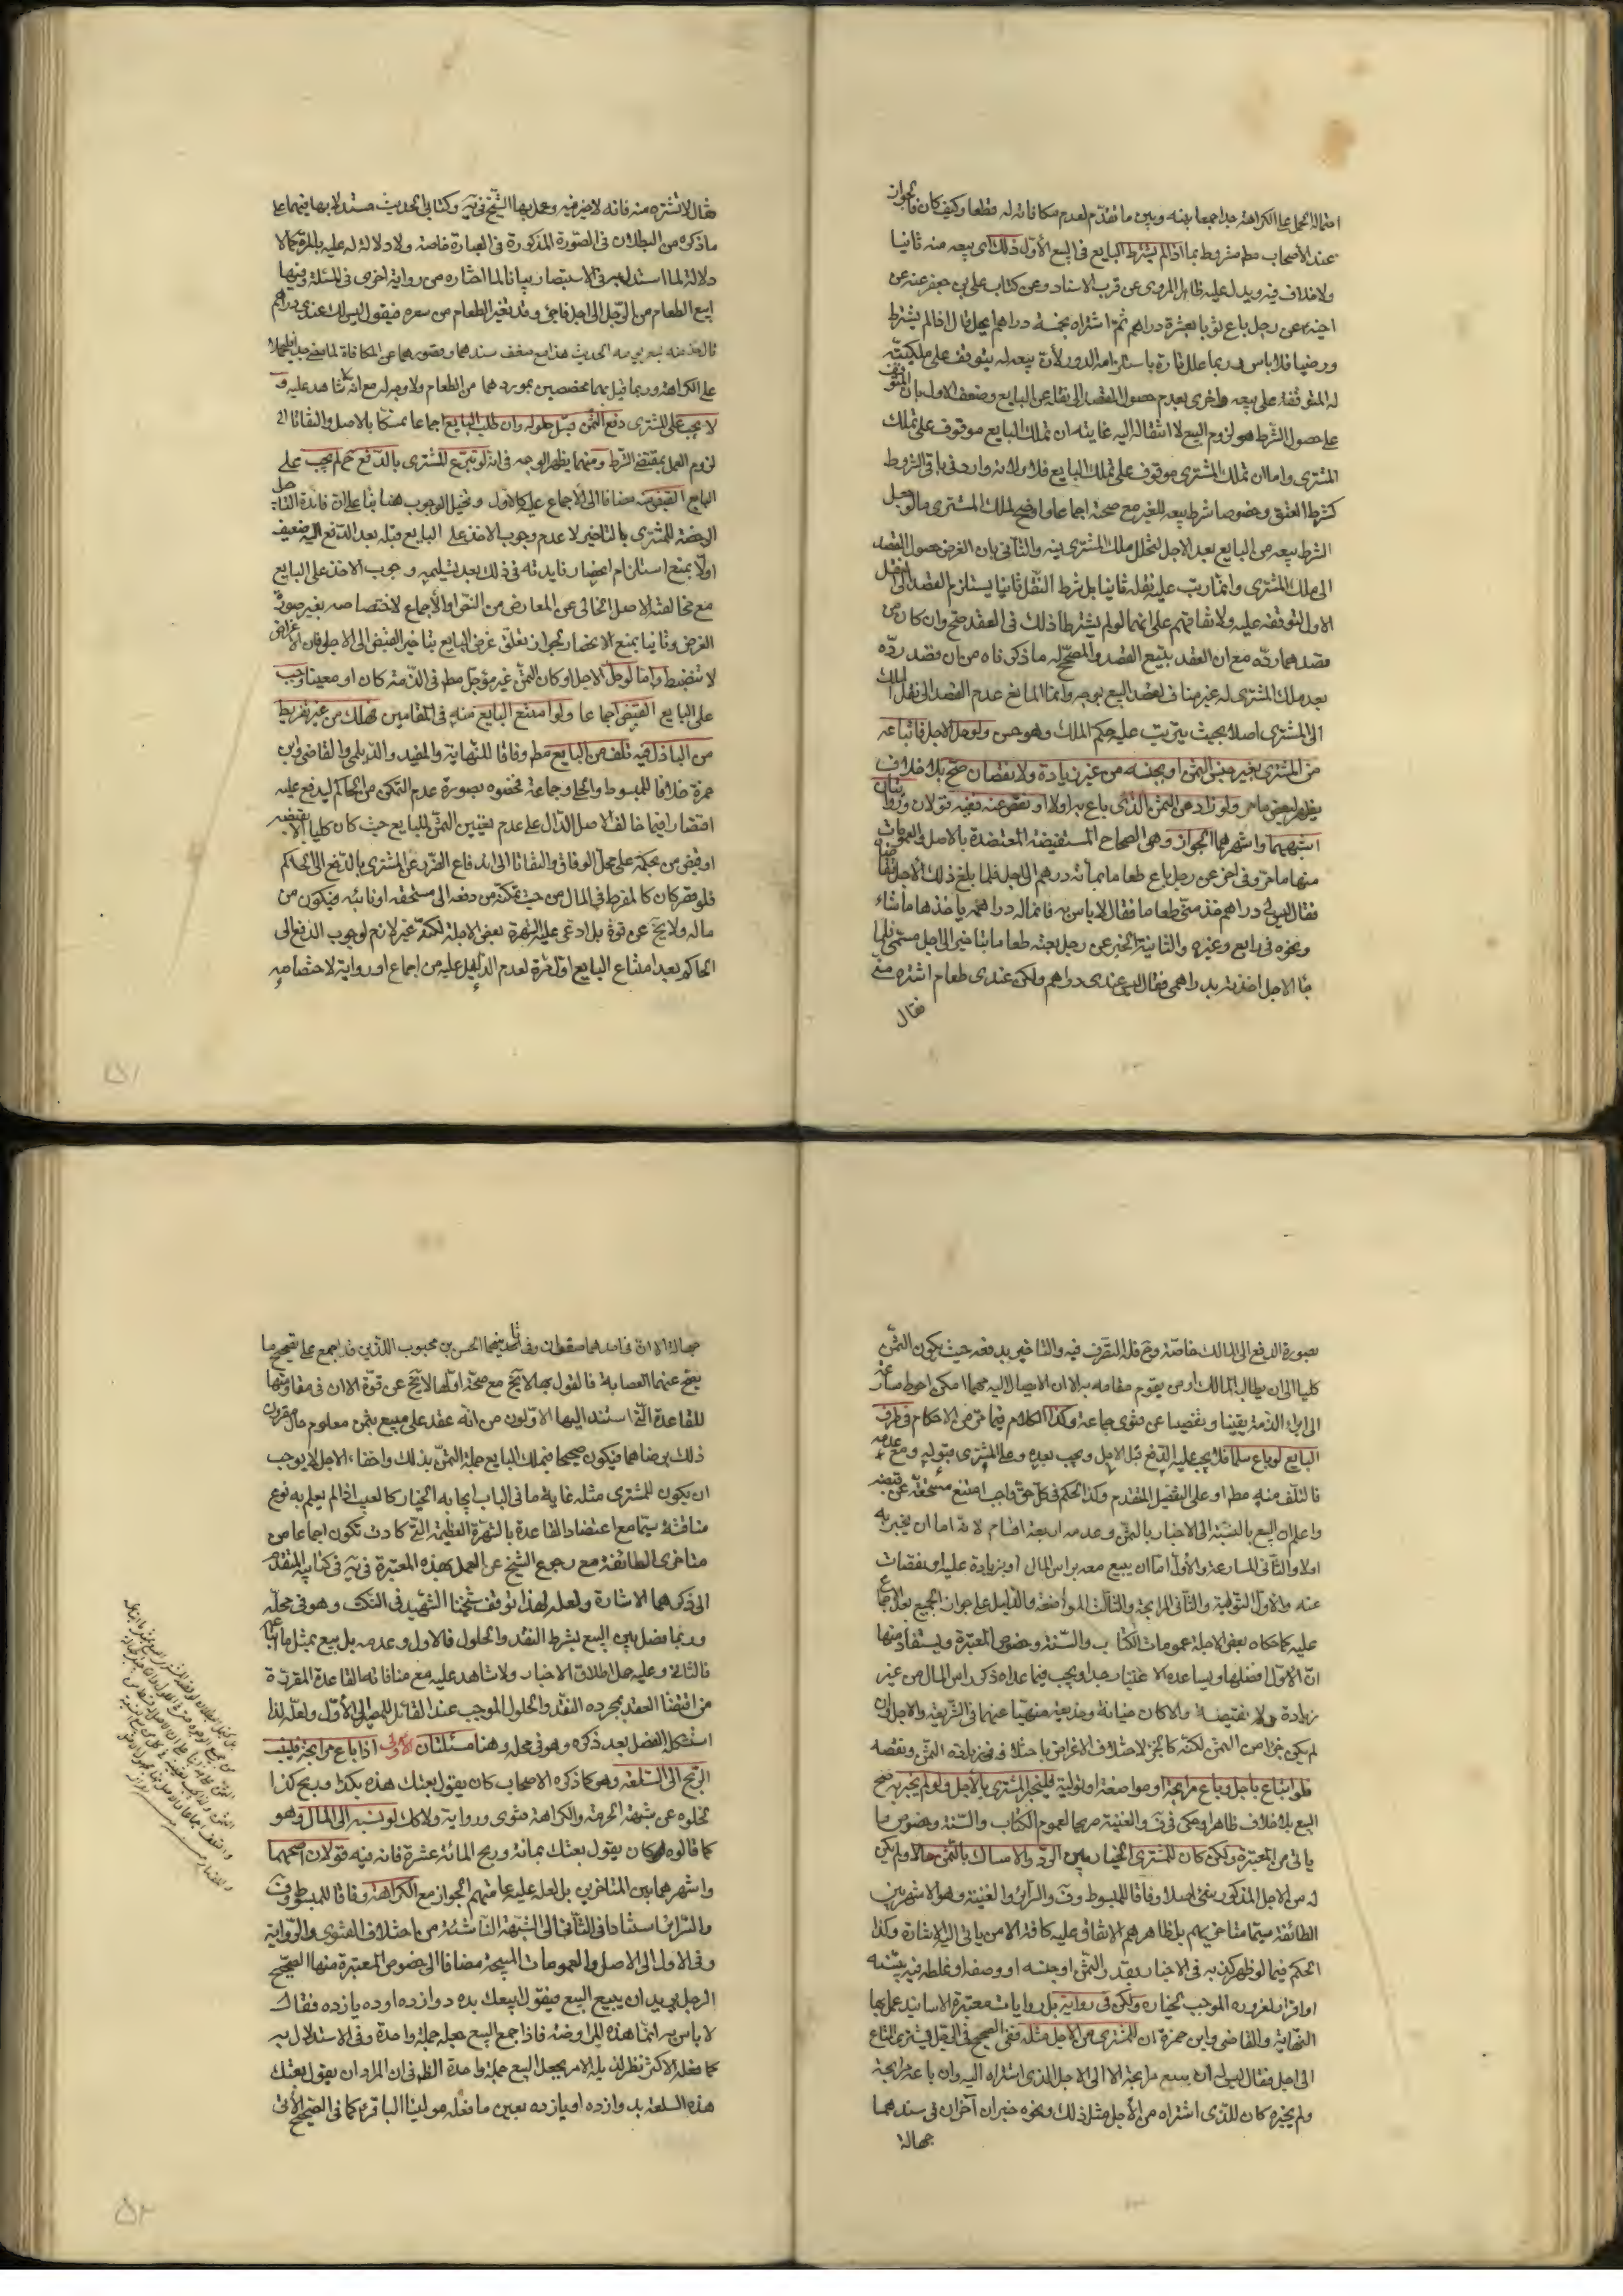 احتمالا الحمل على الكراهة جدا جمعا بينه وبين ما تقدم لعدم مكافاته له قطعا وكيف كان فالجواز
عند الأصحاب مط مشروط بما اذا لم يشترط البايع في البيع الأول ذلك اى بيعه منه ثانيا
ولا خلاف فيه ويدل عليه ظاهر المروى عن قرب الاسناد وعن كتاب على بن جعفر عنه عن
اخيه عن رجل باع ثوبا بعشرة دراهم ثم اشتراه بخمسة دراهم ايحل قال اذا لم يشترط
ورضيا فلا باس وربما علل تارة باستلزامه الدور لأن بيعه له يتوقف على ملكيته
له المتوقفة على بيعه واخرى بعدم حصول القصد الى نقله عن البايع وضعف الاول بان المتوقف
على حصول الشرط هو لزوم البيع لا انتقاله اليه غايته ان تملك البايع موقوف على تملك
المشترى واما ان تملك المشترى موقوف على تملك البايع فلا ولانه وارد في باقى الشروط
كشرط العتق وخصوصا شرط بيعه للغير مع صحته اجماعا واوضح لملك المشترى ما لو جعل
الشرط بيعه من البايع بعد الاجل لتخلل ملك المشترى فيه والثانى بان الغرض حصول القصد
الى ملك المشترى وانما رتب عليه نقله ثانيا بل شرط النقل ثانيا يستلزم القصد الى النقل
الاول لتوقفه عليه ولاتفاقهم على انهما لو لم يشترطا ذلك في العقد صح وان كان من
قصدهما رده مع ان العقد يتبع القصد والمصحح له ما ذكرناه من ان قصد رده
بعد ملك المشترى له غير مناف لقصد البيع بوجه وانما المانع عدم القصد الى نقل الملك
الى المشترى اصلا بحيث يترتب عليه حكم الملك وهو حسن ولو حل الاجل فابتاعه
من المشترى بغير جنس الثمن او بجنسه من غير زيادة ولا نقصان صح بلا خلاف
يظهر لجميع ما مر ولو زاد عن الثمن الذى باع به اولا او نقص عنه ففيه قولان وروايتان
اشبههما واشهرهما الجواز وهى الصحاح المستفيضة المعتضدة بالاصل والعمومات
منها ما مر وفى اخر عن رجل باع طعاما بمأته درهم الى اجل فلما بلغ ذلك الأجل تقاضاه
فقال ليس لى دراهم خذ منى طعاما فقال لا باس به فانما له دراهمه ياخذ بها ما شاء
ونحوه في رابع وغيره والثانية الخبر عن رجل بعته طعاما بتاخير الى اجل مسمى فلما
جا الاجل اخذته بدراهمى فقال ليس عندى دراهم ولكن عندى طعام اشتره منى
فقال
فقال لا تشتره منه فانه لا خير فيه وعمل بها الشيخ في ية وكتابى الحديث مستدلا بها فيهما على
ما ذكره من البطلان في الصورة المذكورة في العبارة خاصة ولا دلالة له عليه بالمرة كما لا
دلالة لما استدل به في الاستبصار بيانا لما اختاره من رواية اخرى في المسئلة ومنها
ابيع الطعام من الرجل الى اجل فاجئ وقد تغير الطعام من سعره فيقول ليس لك عندى دراهم
قال خذ منه بسعر يومه الحديث هذا مع ضعف سندهما وقصورهما عن المكافاة لما مضى
على الكراهة وربما قيل بهما مخصصين بموردهما من الطعام ولا وجه له مع انه لا شاهد عليه و
لا يجب على المشترى دفع الثمن قبل حلوله وان طلب البايع اجماعا تمسكا بالاصل والتفاتا الى
لزوم العمل بمقتضى الشرط ومنهما يظهر الوجه في انه لو تبرع المشترى بالدفع ح لم يجب على
البايع القبض مضافا الى الاجماع عليه كالاول وتخيل الوجوب هنا بناء على ان فائدة التاجيل
الرخصة للمشترى بالتاخير لا عدم وجوب الاخذ على البايع قبله بعد الدفع اليه ضعيف
اولا بمنع استلزام انحصار فايدته في ذلك بعد تسليمه وجوب الاخذ على البايع
مع مخالفته الاصل الخالى عن المعارض من النص والأجماع لاختصاصه بغير صورة
الفرض وثانيا بمنع الانحصار لجواز تعلق غرض البايع بتاخير القبض الى الاجل فان الأغراض
لا تنضبط واما لو حل الاجل او كان الثمن غير مؤجل مط في الذمة كان او معينا وجب
على البايع القبض اجماعا ولو امتنع البايع منه في المقامين فهلك من غير تفريط
من الباذل فيه تلف من البايع مط وفاقا للنهاية والمفيد والديلمى والقاضى وابن
حمزة خلافا للمبسوط والحلى وجماعة فخصوه بصورة عدم التمكن من الحاكم ليدفع عليه
اقتصارا فيما خالف الاصل الدال على عدم تعيين الثمن للبايع حيث كان كليا الا بقبضه
او قبض من بحكمه على محل الوفاق والتفاتا الى اندفاع الضرر عن المشترى بالدفع الى الحاكم
فلو قصر كان كالمفرط في المال من حيث تمكنه من دفعه الى مستحقه او نائبه فيكون من
ماله ولا يخ عن قوة بل ادعى عليه الشهرة بعض الاجلة لكنه غير لازم لوجوب الدفع الى
الحاكم بعد امتناع البايع اول مرة لعدم الدليل عليه من اجماع او رواية لاختصاصه
۵۱
بصورة الدفع الى المالك خاصة وح فله التصرف فيه والتاخير بدفعه حيث يكون الثمن
كليا الى ان يطالب المالك او من يقوم مقامه به الا ان الايصال اليه مهما امكن احوط مسارعة
الى ابراء الذمة يقينا وتفصيا عن فتوى جماعة وكذا الكلام فيما مر من الاحكام في طرف
البايع لو باع سلما فلا يجب عليه الدفع قبل الاجل ويجب بعده وعلى المشترى قبوله ومع عدمه
فالتلف منه مط او على التفصيل المتقدم وكذا الحكم في كل حق واجب امتنع مستحقه عن قبضه
واعلم ان البيع بالنسبة الى الاخبار بالثمن وعدمه اربعة اقسام لانه اما ان يخبر به
اولا والثانى المساومة والأول اما ان يبيع معه براس المال او بزيادة عليه او نقصان
عنه والاول التولية والثانى المرابحة والثالث المواضعة والدليل على جواز الجميع بعد الاجماع
عليه كما حكاه بعض الاجلة عمومات الكتاب والسنة وخصوص المعتبرة ويستفاد منها
ان الأول افضلها ويساعده الاعتبار جدا ويجب فيما عداه ذكر راس المال من غير
زيادة ولا نقيصة والا كان خيانة وخديعة منهيا عنهما في الشريعة والاجل وان
لم يكن جزءا من الثمن لكنه كالجزء لاختلاف الاغراض باختلافه في زيادة الثمن ونقصه
فلو ابتاع باجل وباع مرابحة او مواضعة او تولية فليخبر المشترى بالأجل ولو لم يخبر به صح
البيع بلا خلاف ظاهر وحكى في ف والغنية صريحا لعموم الكتاب والسنة وخصوص ما
ياتى من المعتبرة ولكن كان للمشترى الخيار بين الرد والامساك بالثمن حالا ولم يكن
له من الاجل المذكور شئ اصلا وفاقا للمبسوط وف والسرائر والغنية وهو الاشهر بين
الطائفة سيما متاخريهم بل ظاهرهم الاتفاق عليه كافة الا من ياتى اليه الاشارة وكذا
الحكم فيما لو ظهر كذبه في الاخبار بقدر الثمن او جنسه او وصفه او غلطه فيه ببينة
او اقرار لغروره الموجب لخياره ولكن في رواية بل روايات معتبرة الاسانيد عمل بها
النهاية والقاضى وابن حمزة ان للمشترى من الاجل مثله ففى الصحيح في الرجل يشترى المتاع
الى اجل فقال ليس له ان يبيع مرابحة الا الى الاجل الذى اشتراه اليه وان باعه مرابحة
ولم يخبره كان للذى اشتراه من الأجل مثل ذلك ونحوه خبران آخران في سندهما
جهالة
جهالة الا ان في احدهما صفوان وفى ثانيهما الحسن بن محبوب اللذين قد اجمع على تصحيح ما
يصح عنهما العصابة فالقول بها لا يخ مع صحة اولها لا يخ عن قوة الا ان في مقاومتها
للقاعدة التى استند اليها الاولون من انه عقد على مبيع بثمن معلوم حال مقرون
ذلك برضاهما فيكون صحيحا فيملك البايع جملة الثمن بذلك واخفاء الاجل لا يوجب
ان يكون للمشترى مثله غاية ما في الباب ايجابه الخيار كالعيب اذا لم يعلم به نوع
مناقشة سيما مع اعتضاد القاعدة بالشهرة العظيمة التى كادت تكون اجماعا من
متاخرى الطائفة مع رجوع الشيخ عن العمل بهذه المعتبرة في ية في كتابيه المتقدم
الى ذكرهما الاشارة ولعله لهذا توقف شيخنا الشهيد في النكت وهو في محله
وربما فصل بين البيع بشرط النقد والحلول فالاول وعدمه بل بيع بمثل ما ابتاع
فالثانى وعليه حمل اطلاق الاخبار ولا شاهد عليه مع منافاته القاعدة المقررة
من اقتضا العقد بمجرده النقد والحلول الموجب عند القائل للمصير الى الأول ولعله لذا
استشكل الفصل بعد ذكره وهو في محله وهنا مسئلتان الاولى اذا باع مرابحة فلينسب
الربح الى السلعة وهو كما ذكره الاصحاب كان يقول بعتك هذه بكذا وربح كذا
لخلوه عن شبهة الحرمة والكراهة فتوى ورواية ولا كك لو نسبه الى المال وهو
كما قالوه كان يقول بعتك بمائة وربح المائة عشرة فانه فيه قولان اصحهما
واشهرهما بين المتاخرين بل لعله عليه عامتهم الجواز مع الكراهة وفاقا للمبسوط وف
والسرائر استنادا في الثانى الى الشبهة الناشئة من اختلاف الفتوى والرواية
وفى الاول الى الاصل والعمومات المبيحة مضافا الى خصوص المعتبرة منها الصحيح
الرجل يريد ان يبيع البيع فيقول ابيعك بده دوازده او ده يازده فقال
لا باس به انما هذه المراوضة فاذا جمع البيع جعله جملة واحدة وفى الاستدلال به
كما فعله الاكثر نظر لذيله الامر بجعل البيع جملة واحدة الظ في ان المراد ان يقول بعتك
هذه السلعة بدوازده او يازده بعين ما فعله مولينا الباقر ع كما في الصحيح الأتى
۵۲